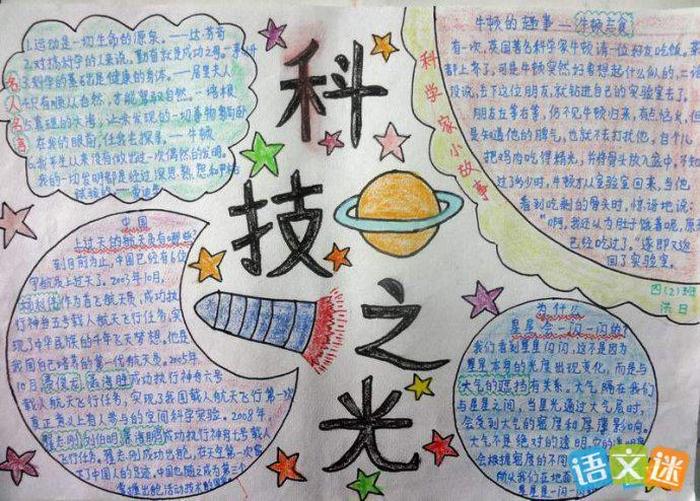 科技之光
名人名言
运动是一切生命的源泉。——达·芬奇
对搞科学的人来说,勤奋就是成功之母。
科学的基础是健康的身体。——居里夫人
只有顺从自然,才能驾驭自然。——培根
真理的大海,让未发现的一切事物躺卧
在我的眼前,任我去探寻。——牛顿
我平生从来没有做出过一次偶然的发明。
我的一切发明都是经过深思熟虑和严格
试验的
科学家小故事
牛顿的趣事—牛顿忘食
有一次,英国著名科学家牛顿请一位好友吃饭,
都上齐了,可是牛顿突然好想起什么似的,二
没说,丢下这位朋友,就钻进自己的实验室去了。
朋友左等右等,仍不见牛顿归来,有点恼火,但
是知道他的脾气,也就不去打扰他,自个儿
把鸡肉吃得精光,并将骨头放入盘中,不
过了多少时,牛顿才从实验室回来,当他
看到吃剩的骨头时,惊讶地说:
“啊,我还认为肚子饿着呢,原
已经吃过了。”遂即又返
回了实验室。
四(2)班
中国
上过天的航天员有哪些?
到目前为止,中国已经有6位
宇航员上过天了。2003年10月,
杨利伟作为首飞航天员,成功执
行神舟五号载人航天飞行任务,实
现了中华民族的千年飞天梦想。他是
我国自己培养的第一代航天员。2005年
10月费俊龙、聂海胜成功执行神舟六号
载人航天飞行任务,实现了我国载人航天飞行第一次
真正意义上有人参与的空间科学实验。2008年,
翟志刚、刘伯明、景海鹏成功执行神舟七号载人
飞行任务。翟志刚成功出舱,在太空第一次留
下了中国人的足迹,中国也随之成为第三个
掌握出舱活动技术的国家
为什么
星星会一闪一闪的?
我们看到星星闪闪,这不是因为
星星本身的光度出现变化,而是与
大气的遮挡有关系。大气隔在我们
与星星之间,当星光通过大气层时,
会受到大气的密度和厚薄影响。
大气不是绝对的透明,
会根据密度的不同
所以我们在地面
星星一闪一闪
语文迷